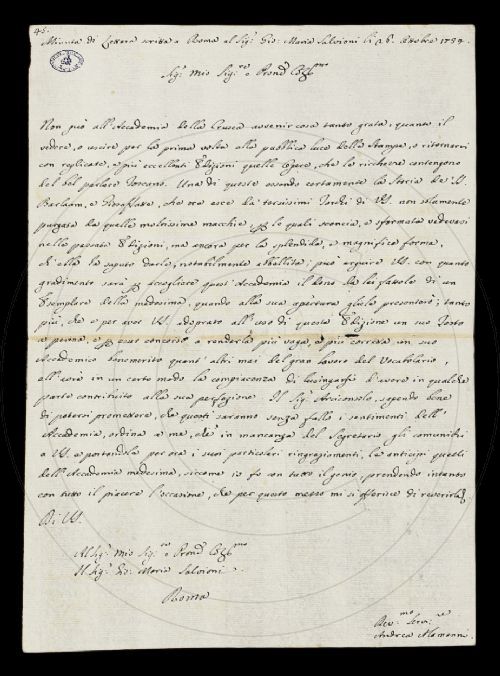 45.
Minuta di Lettera scritta a Roma al Sig.r Gio: Maria Salvioni li 26. Ottobre 1734.
Sig.r Mio Sig.re e Pron.e Col.mo
Non può all'Accademia della Crusca avvenir cosa tanto grata, quanto il
vedere, o uscire per la prima volta alla pubblica luce delle Stampe, o ritornarvi
con replicate, e più eccellenti Edizioni quelle Opere, che le ricchezze contengono
del bel parlare Toscano. Una di queste essendo certamente la Storia de' SS.
Barlaam, e Giosaffatte, che ora esce da' torcisimi Torchi di VS. non solamente
purgata da quelle moltissime macchie, p le quali sconcia, e sformata vedevasi
nelle passate Edizioni, ma ancora per la splendida, e magnifica forma,
ch'ella ha saputo darle, notabilmente abbellita; può arguire VS. con quanto
gradimento sarà p accogliere quest'Accademia il dono da lei fattole di un
Esemplare della medesima, quando alla sua apertura glielo presenterò; tanto
più, che e per aver VS. adoprato all'uso di questa Edizione un suo Testo
a penna, e p esser concorso a renderla più vaga, e più corretta un suo
Accademico benemerito quant'altri mai del gran lavoro del Vocabolario,
ell'avrà in un certo modo la compiacenza di lusingarsi d'avere in qualche
parte contribuito alla sua perfezione. Il Sig.r Arciconsolo, sapendo bene
di potersi promettere, che questi saranno senza fallo i sentimenti dell'
Accademia, ordina a me, che in mancanza del Segretario gli comunichi
a VS. e portandole per ora i suoi particolari ringraziamenti, le anticipi quelli
dell'Accademia medesima, siccome io fo con tutto il genio, prendendo intanto
con tutto il piacere l'occasione, che per questo mezzo mi si offerisce di reverirla
Di VS.
Al Sig.r Mio Sig.re e Pron.e Col.mo
Il Sig.r Gio: Maria Salvioni
Roma
Dev.mo Serv.re
Andrea Alamanni